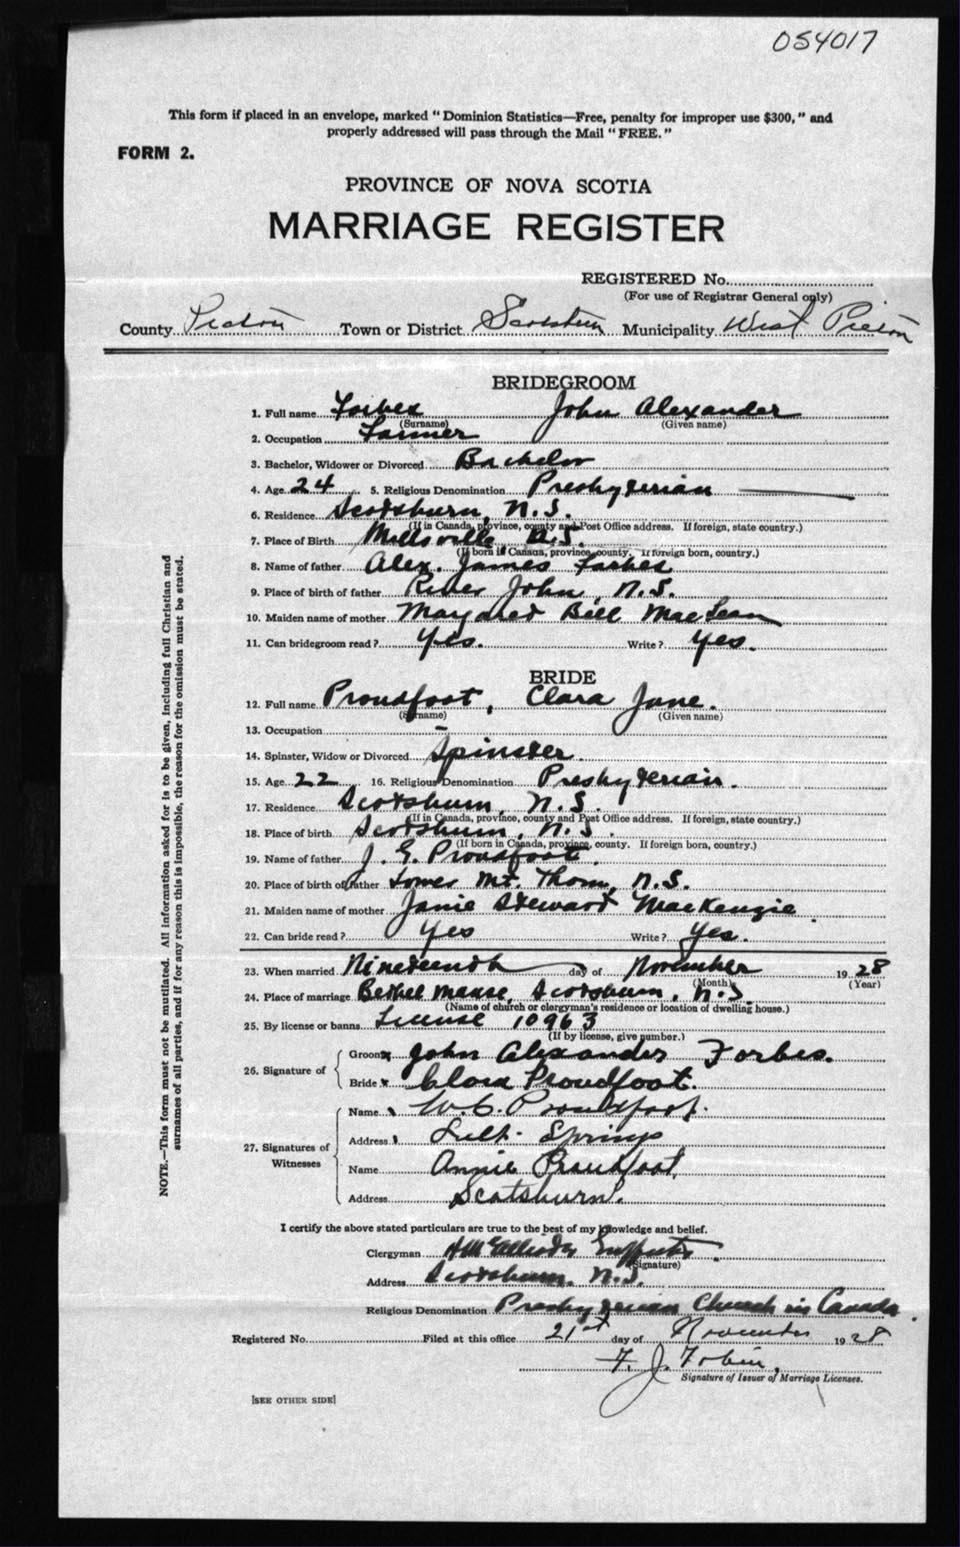 054017
This form if placed in an envelope, marked "Dominion Statistics—Free, penalty for improper use $300," and
properly addressed will pass through the Mail "FREE."
FORM 2.
PROVINCE OF NOVA SCOTIA
MARRIAGE REGISTER
REGISTERED No.
(For use of Registrar General only)
County Pictou Town or District Scotsburn Municipality West Pictou
BRIDEGROOM
1. Full name Forbes John Alexander
(Surname) (Given name)
2. Occupation Farmer
3. Bachelor, Widower or Divorced Bachelor
4. Age 24 5. Religious Denomination Presbyterian
6. Residence Scotsburn, N.S.
(If in Canada, province, county and Post Office address. If foreign, state country.)
7. Place of Birth Millsville N.S.
(If born in Canada, province, county. If foreign born, country.)
8. Name of father Alex. James Forbes
9. Place of birth of father River John, N.S.
10. Maiden name of mother Margaret Bell MacLean
11. Can bridegroom read? Yes. Write? Yes.
BRIDE
12. Full name Proudfoot, Clara Jane.
(Surname) (Given name)
13. Occupation –
14. Spinster, Widow or Divorced Spinster.
15. Age 22 16. Religious Denomination Presbyterian.
17. Residence Scotsburn, N.S.
(If in Canada, province, county and Post Office address. If foreign, state country.)
18. Place of birth Scotsburn, N.S.
(If born in Canada, province, county. If foreign born, country.)
19. Name of father J. G. Proudfoot.
20. Place of birth of father Lower Mt. Thom, N.S.
21. Maiden name of mother Janie Stewart MacKenzie.
22. Can bride read? Yes Write? Yes.
23. When married Nineteenth day of November 1928
(Month) (Year)
24. Place of marriage Bethel Manse, Scotsburn, N.S.
(Name of church or clergyman's residence or location of dwelling house.)
25. By license or banns License 10963
(If by license, give number.)
26. Signature of
Groom x John Alexander Forbes.
Bride x Clara Proudfoot.
27. Signatures of Witnesses
Name W. C. Proudfoot.
Address Springs
Name Annie Proudfoot,
Address Scotsburn.
I certify the above stated particulars are true to the best of my knowledge and belief.
Clergyman
(Signature)
Address Scotsburn, N.S.
Religious Denomination Presbyterian Church in Canada.
Registered No. Filed at this office 21st day of November 1928
F. J. Tobin.
Signature of Issuer of Marriage Licenses.
[SEE OTHER SIDE]
NOTE.—This form must not be mutilated. All information asked for is to be given, including full Christian and
surnames of all parties, and if for any reason this is impossible, the reason for the omission must be stated.